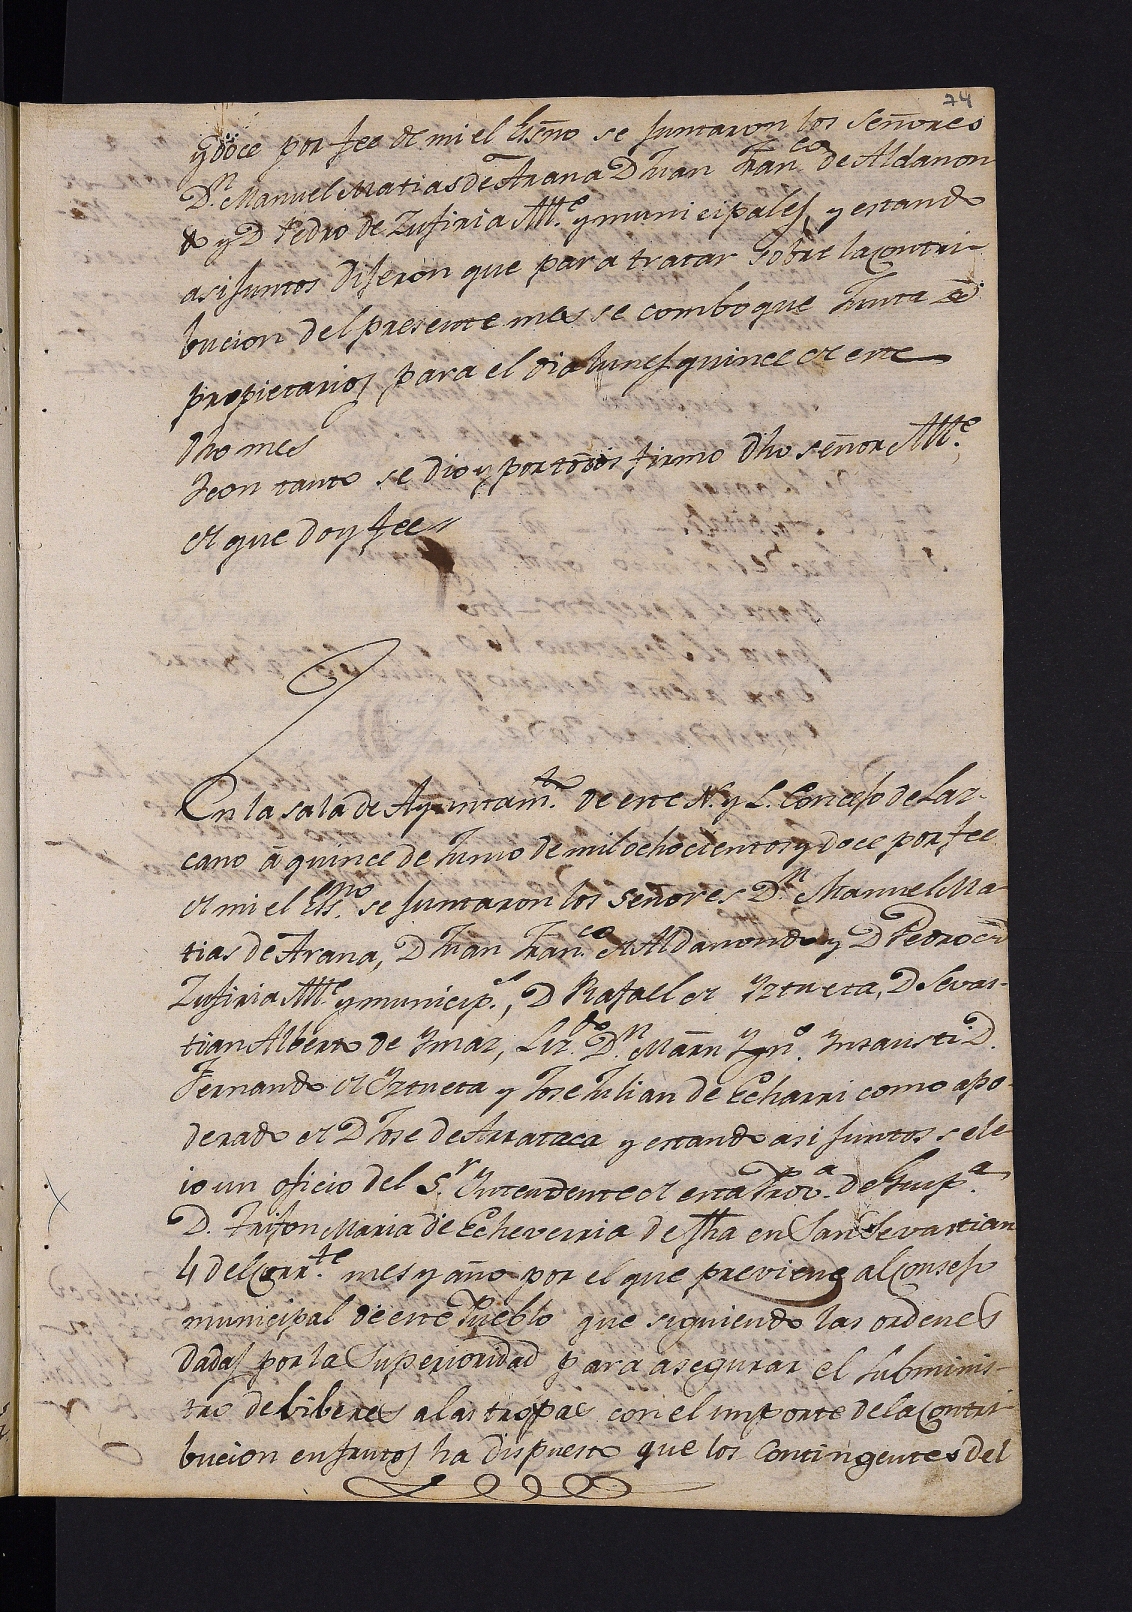 74
y doce por fee de mi el Essno se juntaron los señores
Dn. Manuel Matias de Arana D Juan Franco. de Aldamon
do y D Pedro de Zufiria Alle. y municipales, y estando
asi juntos dijeron que para tratar sobre la contri-
bucion del presente mes se comboque Junta de
propietarios para el dia lunes quince de este
dho mes
Icon tanto se dio y por todos firmo dho señor Alle.
de que doy fee
En la sala de Ayuntamto. de este N. y L. Concejo de Laz-
cano á quince de Junio de mil ochocientos y doce por fee
de mi el Essno. se juntaron los señores Dn. Manuel Ma-
tias de Arana, D Juan Franco. de Aldamondo y D Pedro de
Zufiria Alle. y municipl., D Rafael de Yztueta, D Sevas-
tian Alberto de Ymaz, Lizdo. Dn. Martn Ygno. Ynsausti D.
Fernando de Yztueta y Jose Julian de Echarri como apo-
derado de D Jose de Arrataca y estando asi juntos se le-
io un oficio del Sr. Yntendente de esta Prova. de Guipa.
D. Trifon Maria de Echeverria de fha en San Sevastian
4 del corrte. mes y año por el que previene al Consejo
municipal de este Pueblo que siguiendo las ordenes
dadas por la Superioridad para asegurar el subminis-
tro de biberes a las tropas con el importe de la Contri-
bucion en frutos ha dispuesto que los Contingentes del